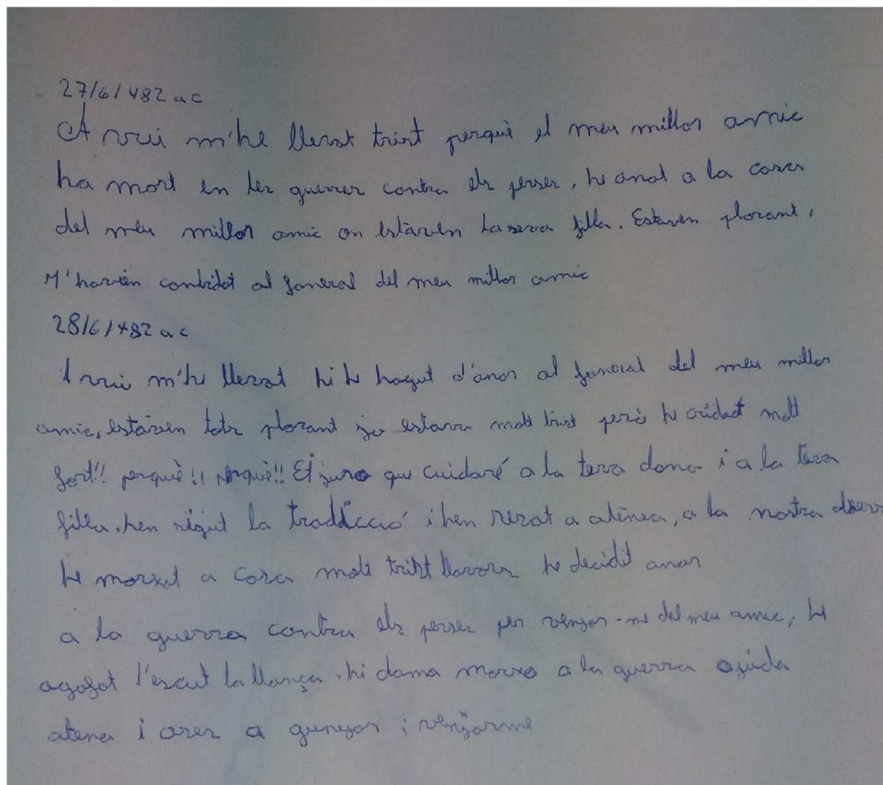 27/6/482 a c
A vui m'he llevat trist perquè el meu millor amic
ha mort en les guerres contra els perses, he anat a la casa
del meu millor amic on estàven la seva filla. Estaven plorant,
M'havien conbidat al funeral del meu millor amic
28/6/482 a c
A vui m'he llevat hi he hagut d'anar al funeral del meu millor
amic, estàven tots plorant jo estava molt trist però he cridat molt
fort!! perquè!! perquè!! Et juro que cuidaré a la teva dona i a la teva
filla. hen seguit la tradicció i hen resat a atenea, a la nostra deesa
he marxat a casa molt trist llavors he decidit anar
a la guerra contra els perses per venjar-me del meu amic, he
agafat l'escut la llança. hi dama marxo a la guerra ajuda
atenea i ares a gunyar i venjarme